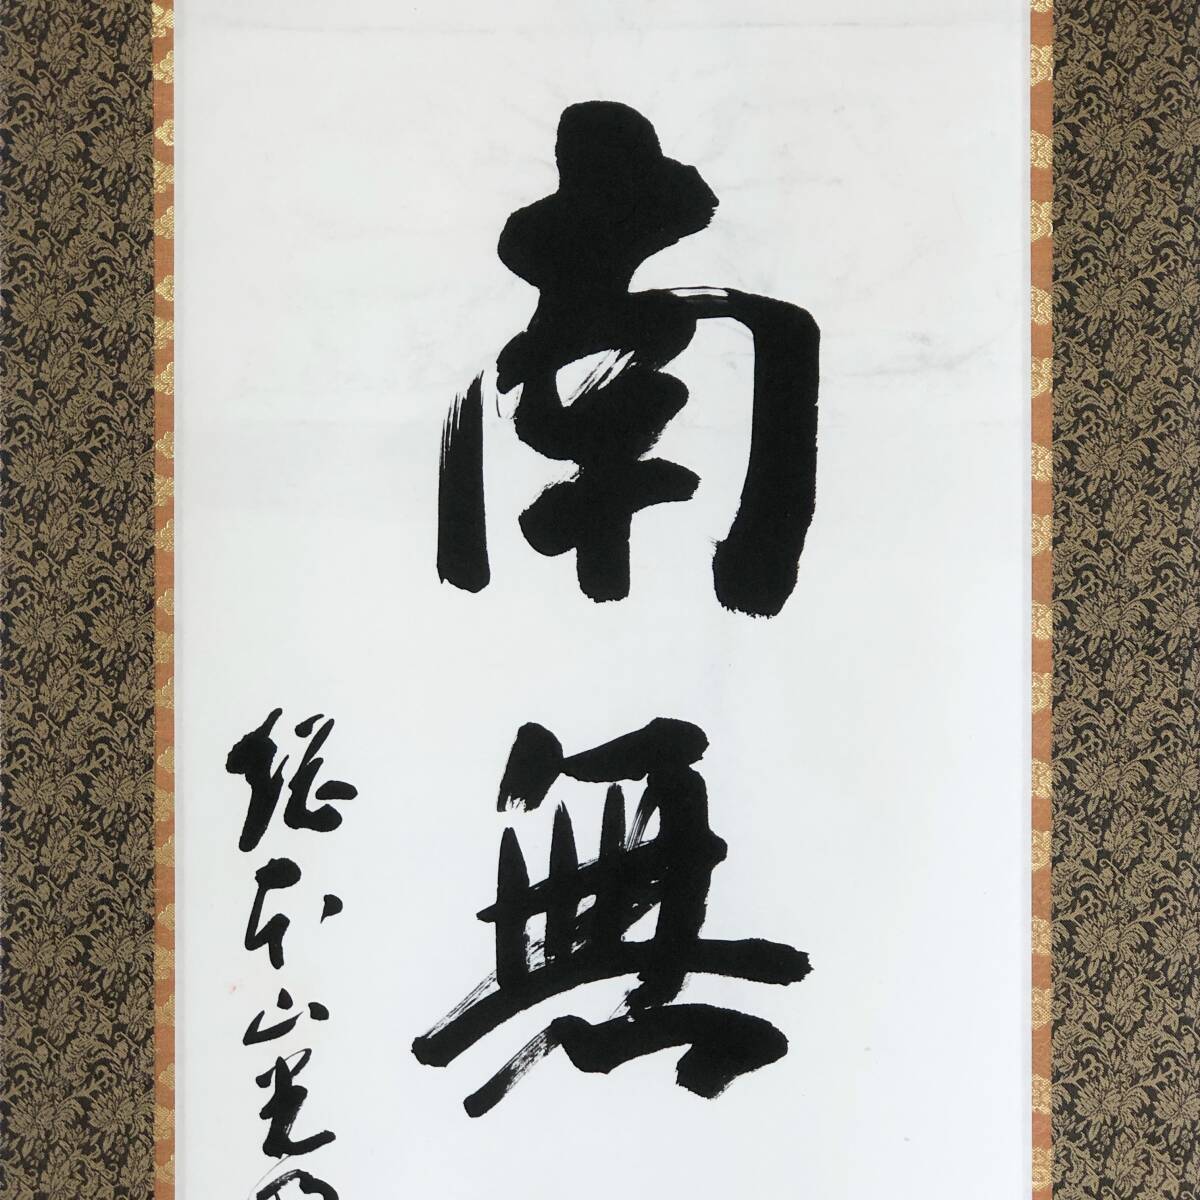 南無
總本山光